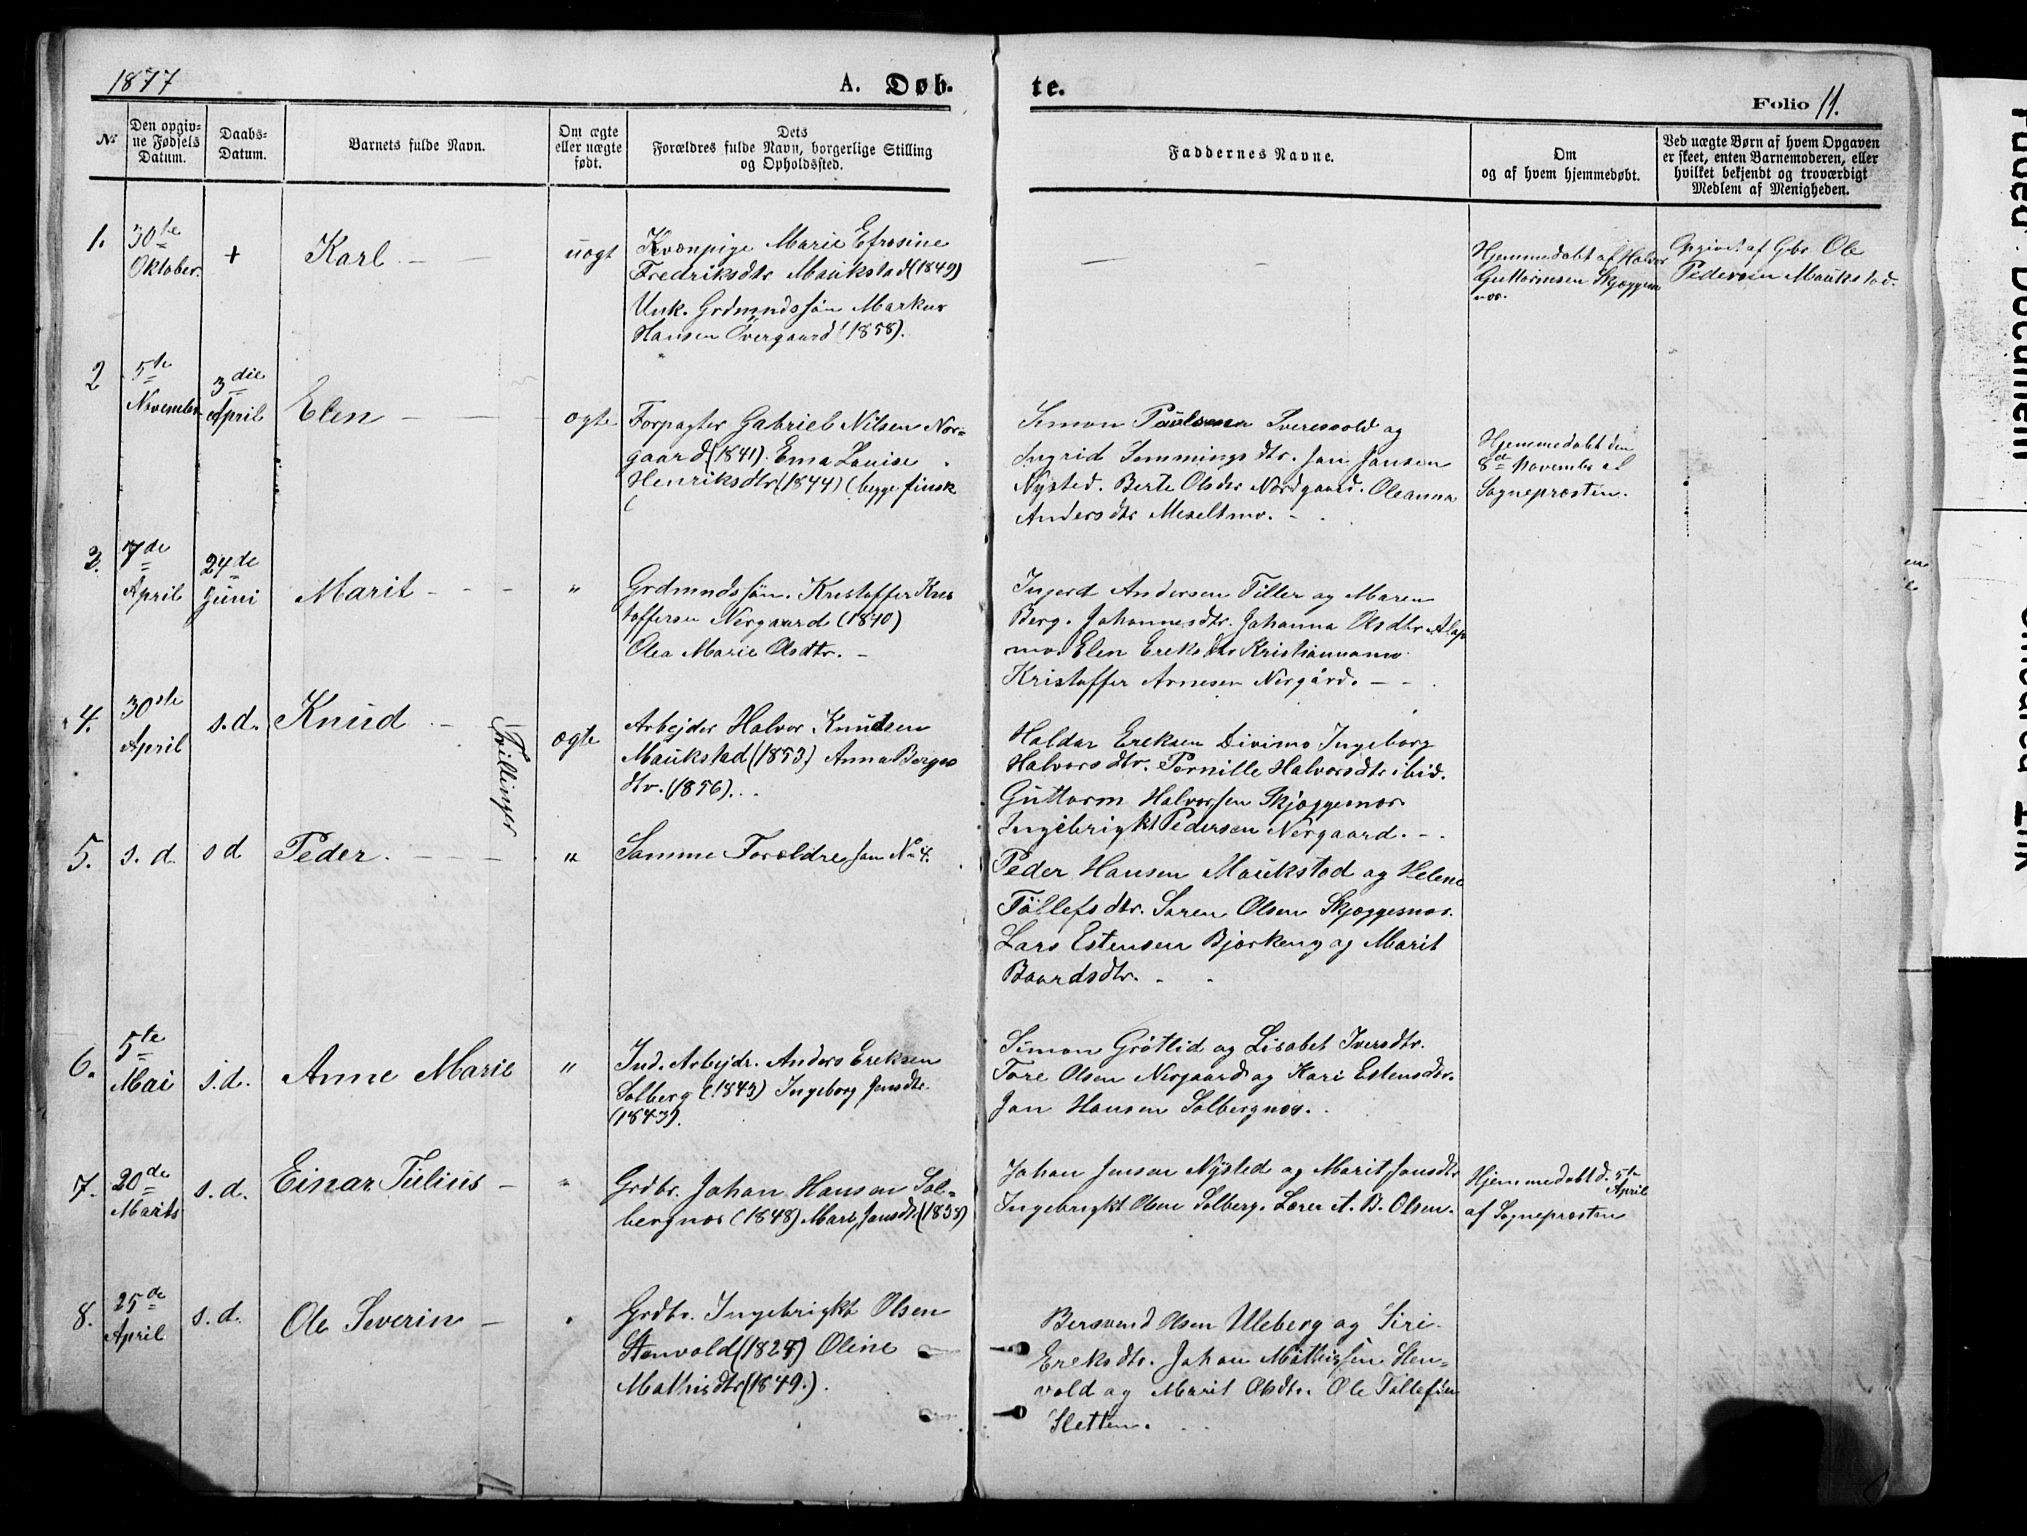 1877
A. Døb-
te.
Folio 11.
№
Den opgiv-
ne Fødsels
Datum.
Daabs-
Datum.
Barnets fulde Navn.
Om ægte
eller uægte
født.
Dets
Forældres fulde Navn, borgerlige Stilling
og Opholdssted.
Faddernes Navne.
Om
og af hvem hjemmedøbt.
Ved uægte Børn af hvem Opgaven
er skeet, enten Barnemoderen, eller
hvilket bekjendt og troværdigt
Medlem af Menigheden.
1.
30te
Oktober.
+
Karl — —
uægt
Kvænpige Marie Efrosine
Fredriksdtr Maukstad (1849)
Unk. Grdmndssøn Markus
Hansen Övergaard (1858).
—
Hjemmedøbt af Halvor
Guttormsen Skjægges
nes.
Opgivet af Gbr Ole
Pedersen Maukstad.
2
5te
November
3die
April
Elen — —
ægte
Forpagter Gabriel Nilsen Nor-
gaard (1841). Ema Louise
Henriksdtr (1844) (begge finsk
(
Simon Paulsen Iveresvold og
Ingrid Semmingsdtr. Jan Jansen
Nysted. Berte Olsdtr Nordgaard. Oleanna
Andersdtr Meseltmo. -
Hjemmedøbt den
8de November af
Sognepræsten.
3.
7de
April
24de
Juni
Marit - - -
"
Grdmndssøn. Kristoffer Kris
toffersen Nergaard (1840)
Olea Marie Olsdtr. -
Ingerd Andersen Tiller og Maren
Berg. Johannesdtr. Johanna Olsdtr Alap
mo. Elen Ereksdtr Kristiannamo.
Kristoffer Arnesen Nergård. - -
4.
30te
April
s.d.
Knud - -
Tvillinger
ægte
Arbejder Halvor Knudsen
Maukstad (1853) Anna Berges
dtr. (1856). .
Haldor Ereksen Divimo Ingeborg
Halvorsdtr. Pernille Halvorsdtr ibid.
Guttorm Halvorsen Skjæggesnes.
Ingebrigkt Pedersen Nergaard. -.
5.
s. d.
s d
Peder. - - -
"
Samme Forældre som № 4.
Peder Hansen Maukstad og Helene
Tøllefsdtr. Søren Olsen Skjæggesnes.
Lars Estensen Bjørkeng og Marit
Baardsdtr. .
6.
5te
Mai
s.d.
Anne Marie
"
Ind. Arbejdr. Anders Ereksen
Solberg (1845) Ingeborg Jonsdtr.
(1843).
Simon Grøtlid og Lisabet Iversdtr.
Tore Olsen Nergaard og Kari Estensdtr.
Jan Hansen Solbergnes. .
7.
20de
Marts
s. d.
Einar Julius -
"
Grdbr. Johan Hansen Sol-
bergnes (1848) Mari Jansdtr. (1838)
Johan Jensen Nysted og Marit Jonsdtr
Ingebrigkt Olsen Solberg. Lærer A. B. Olsen.
Hjemmedøbt d. 5te
April
af Sognepræsten
8.
25de
April
s. d.
Ole Severin -
"
Grdbr. Ingebrigkt Olsen
Stenvold (1827) Oline
Mathisdtr (1849.).
Bersvend Olsen Uleberg og Siri
Ereksdtr. Johan Mathissen Sten-
vold og Marit Olsdtr. Ole Tollefsen
Sletten.
Faded Document